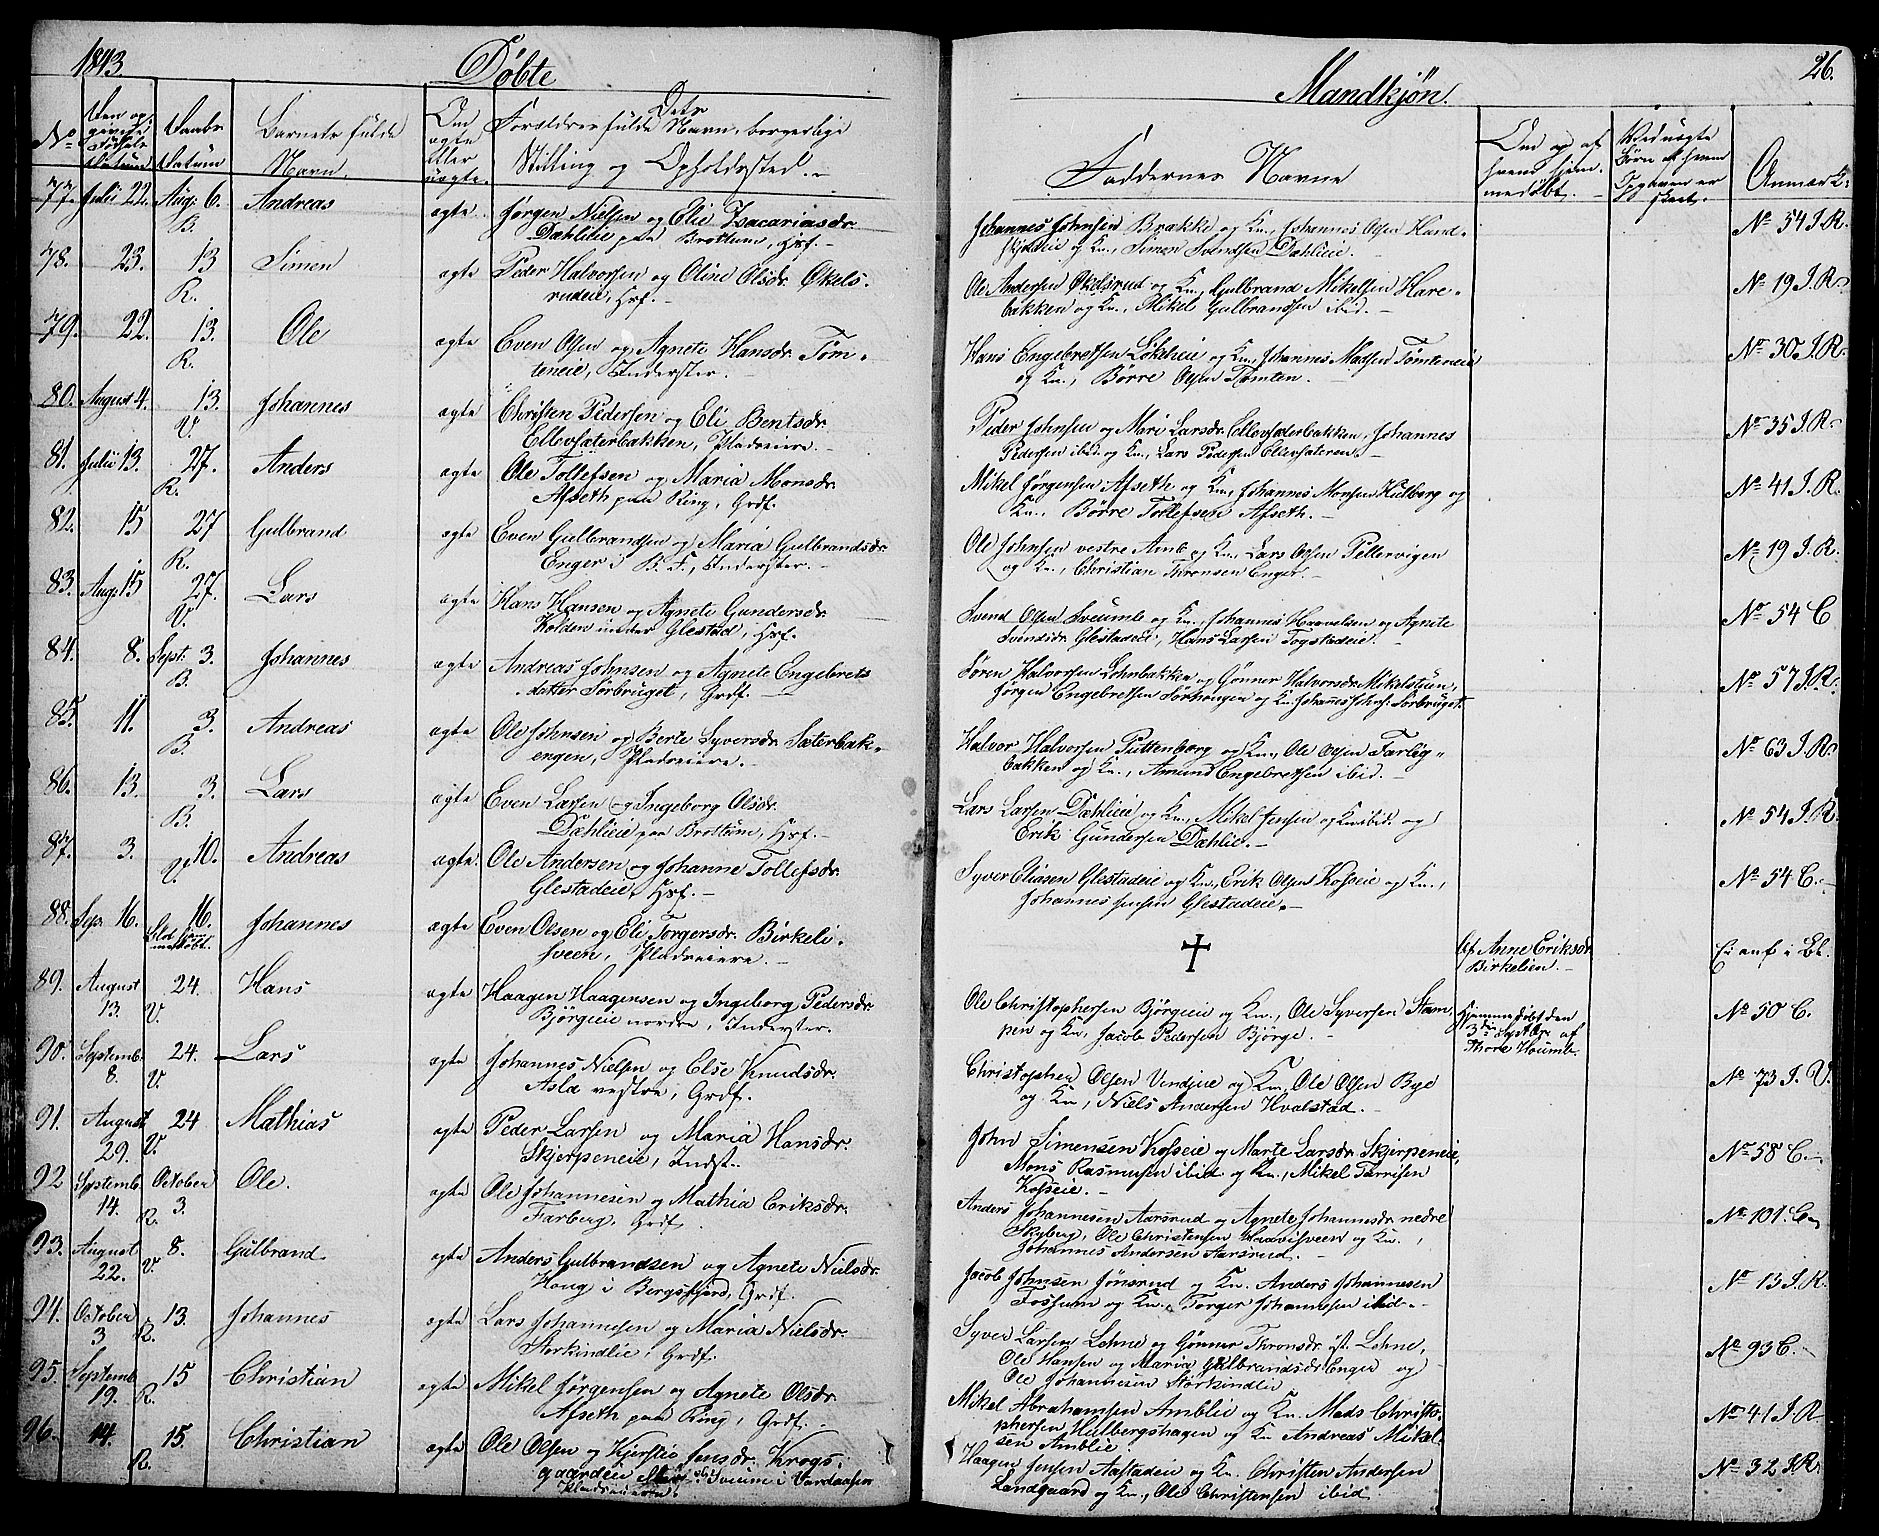 1843
Døbte
Mandkjøn.
26.
No
Den op-
givne
Fødsels
Datum
Daabs
Datum
Barnets fulde
Navn.
Om
ægte
eller
uægte.
Dets
Forældres fulde Navn, borgerlige
Stilling og Opholdssted.
Faddernes Navne
Om og af
hvem hjem-
medøbt.
Ved uægte
Børn af hvem
Opgaven er
skeet.
Anmærk:
77. Julii 22. Aug. 6. B. Andreas ægte. Jørgen Nielsen og Elie Zacariasdr.
Dæhlieie paa Brottum, Hsf.
Johannes Johnsen Brække og Kn., Johannes Olsen Hand-
og Kn., Simen Svendsen Dæhlieie. No 54 J. R.
78. 23. 13 R. Simen ægte Peder Halvorsen og Oline Olsdr. Økels-
rudeie, Hsf.
Ole Andersen Økelsrud og Kn., Gulbrand Mikelsen Hare-
bakken og Kn., Mikel Gulbrandsen ibid. No 19 J. R.
79. 22. 13. R. Ole ægte Even Olsen og Agnete Hansdr. Tøm-
teneie, Inderster.
Hans Engebretsen Løkelieie og Kn., Johannes Madsen Tømteneie
og Kn., Børre Olsen Tømten. No 30 J. R.
80. August 4. 13. V. Johannes ægte Christen Pedersen og Eli Bentsdr.
Ellevsæterbakken, Pladseiere.
Peder Johnsen og Mari Larsdr. Ellevsæterbakken, Johannes
Pedersen ibid og Kn., Lars Pedersen Ellevsæteren. No 35 J. R.
81. Julii 13. 27. R. Anders ægte Ole Tollefsen og Maria Monsdr.
Afseth paa Ring, Grdf.
Mikel Jørgensen Afseth og Kn., Johannes Monsen Hulberg og
Kn., Børre Tollefsen Afseth. No 41 J. R.
82. 15 27 R. Gulbrand ægte Even Gulbrandsen og Maria Gulbrandsdr.
Enger i B. F., Inderster.
Ole Johnsen vestre Amb og Kn., Lars Olsen Pellervigen
og Kn., Christian Thronsen Enger. No 19 J. R.
83. Aug. 15 27. V. Lars ægte Hans Hansen og Agnete Gundersdr.
Holden under Glestad, Hsf.
Svend Olsen Sveumb og Kn., Johannes Haavelsen og Agnete
Svendsdr. Glestadeie, Hans Larsen Togstadeie. No 54 C
84. 8. Sept: 3. B. Johannes ægte Andreas Johnsen og Agnete Engebrets
datter Sørbruget, Grdf.
Søren Halvorsen Lohnbakken og Gønner Halvorsdr. Mikelstuen,
Jørgen Engebretsen Sørhougen og Kn. Johannes Johns: Sørbruget. No 57 J. R.
85. 11. 3. B. Andreas ægte Ole Johnsen og Berte Syversdr. Sæterbak-
engen, Pladseiere.
Halvor Halvorsen Puttenborg og Kn., Ole Olsen Færlig-
bakken og Kn., Amund Engebretsen ibid. No 63 J. R.
86. 13. 3. B. Lars ægte Even Larsen og Ingeborg Olsdr.
Dæhlieie paa Brottum, Hsf.
Lars Larsen Dæhlieie og Kn., Mikel Jensen og Kn. ibid. og
Erik Gundersen Dæhlie. No 54 J. R.
87. 3. 10. V. Andreas ægte. Ole Andersen og Johanne Tollefsdr.
Glestadeie, Hsf.
Syver Eliasen Glestadeie og Kn., Erik Olsen Kosseie og Kn.,
Johannes Jensen Glestadeie. No 54 C.
88. Sep. 16. 16. blot hjem-
medøbt. Johannes ægte Even Olsen og Eli Torgersdr. Birkeli-
sveen, Pladseiere. †
af Anne Eriksdr.
Birkelien. Ei anf i
89. August
13. 24. V. Hans ægte Haagen Haagensen og Ingeborg Pedersdr.
Bjørgeie nordre, Inderster.
Ole Christophersen Bjørgeie og Kn., Ole Syversen Stam-
pen og Kn., Jacob Pedersen Bjørge.
Hjemmedøbt den
3die Septbr af
Thore Houmb. No 50 C.
90. Septemb.
8. 24. V. Lars ægte Johannes Nielsen og Else Knudsdr.
Asla vestre, Grdf.
Christopher Olsen Vendjue og Kn., Ole Olsen Bye
og Kn., Niels Andersen Hvalstad. No 73 J. V.
91. August
29. 24 V. Mathias ægte Peder Larsen og Maria Hansdr.
Skjerpeneie, Indst.
John Simensen Kosseie og Marte Larsdr. Skjerpeneie,
Mons Rasmusen ibid og Kn., Mikel Tarrisen
Kosseie. No 58 C.
92 Septemb.
14. October
3. R. Ole. ægte Ole Johannesen og Mathia Eriksdr.
Farberg, Grdf.
Anders Johannesen Aarsrud og Agnete Johannesdr. nedre
Skyberg, Ole Christensen Hadvisveen og Kn.,
Johannes Andersen Aarsrud. No 101. C.
93. August
22. 8. V. Gulbrand ægte Anders Gulbrandsen og Agnete Nielsdr.
Houg i Bergsfjerd, Grdf.
Jacob Johnsen Jønsrud og Kn. Anders Johannesen
Fossum og Kn., Torger Johannesen ibid. No 13 J. R.
94. October
3 13. R. Johannes ægte Lars Johannesen og Maria Nielsdr.
Storkindlie, Grdf.
Syver Larsen Lohne og Gønner Thronsdr. st. Lohne,
Ole Hansen og Maria Gulbrandsdr. Enger og
Ole Johannesen Storkindlie No 93 C.
95. Septemb.
19. 15 R. Christian ægte Mikel Jørgensen og Agnete Olsdr.
Afseth paa Ring, Grdf.
Mikel Abrahamsen Amblie og Kn. Mads Christo-
phersen Hulbergshagen og Kn. Andreas Mikel-
sen Amblie. No 41 J. R
96. 14. 15. R. Christian ægte Ole Olsen og Kjerstie Jensdr. Krogs-
gaardeie Sveum i Vardaasen
Pladseierne.
Haagen Jensen Aastadeie og Kn. Christen Andersen
Landgaard og Kn., Ole Christensen ibid No 32 J. R.